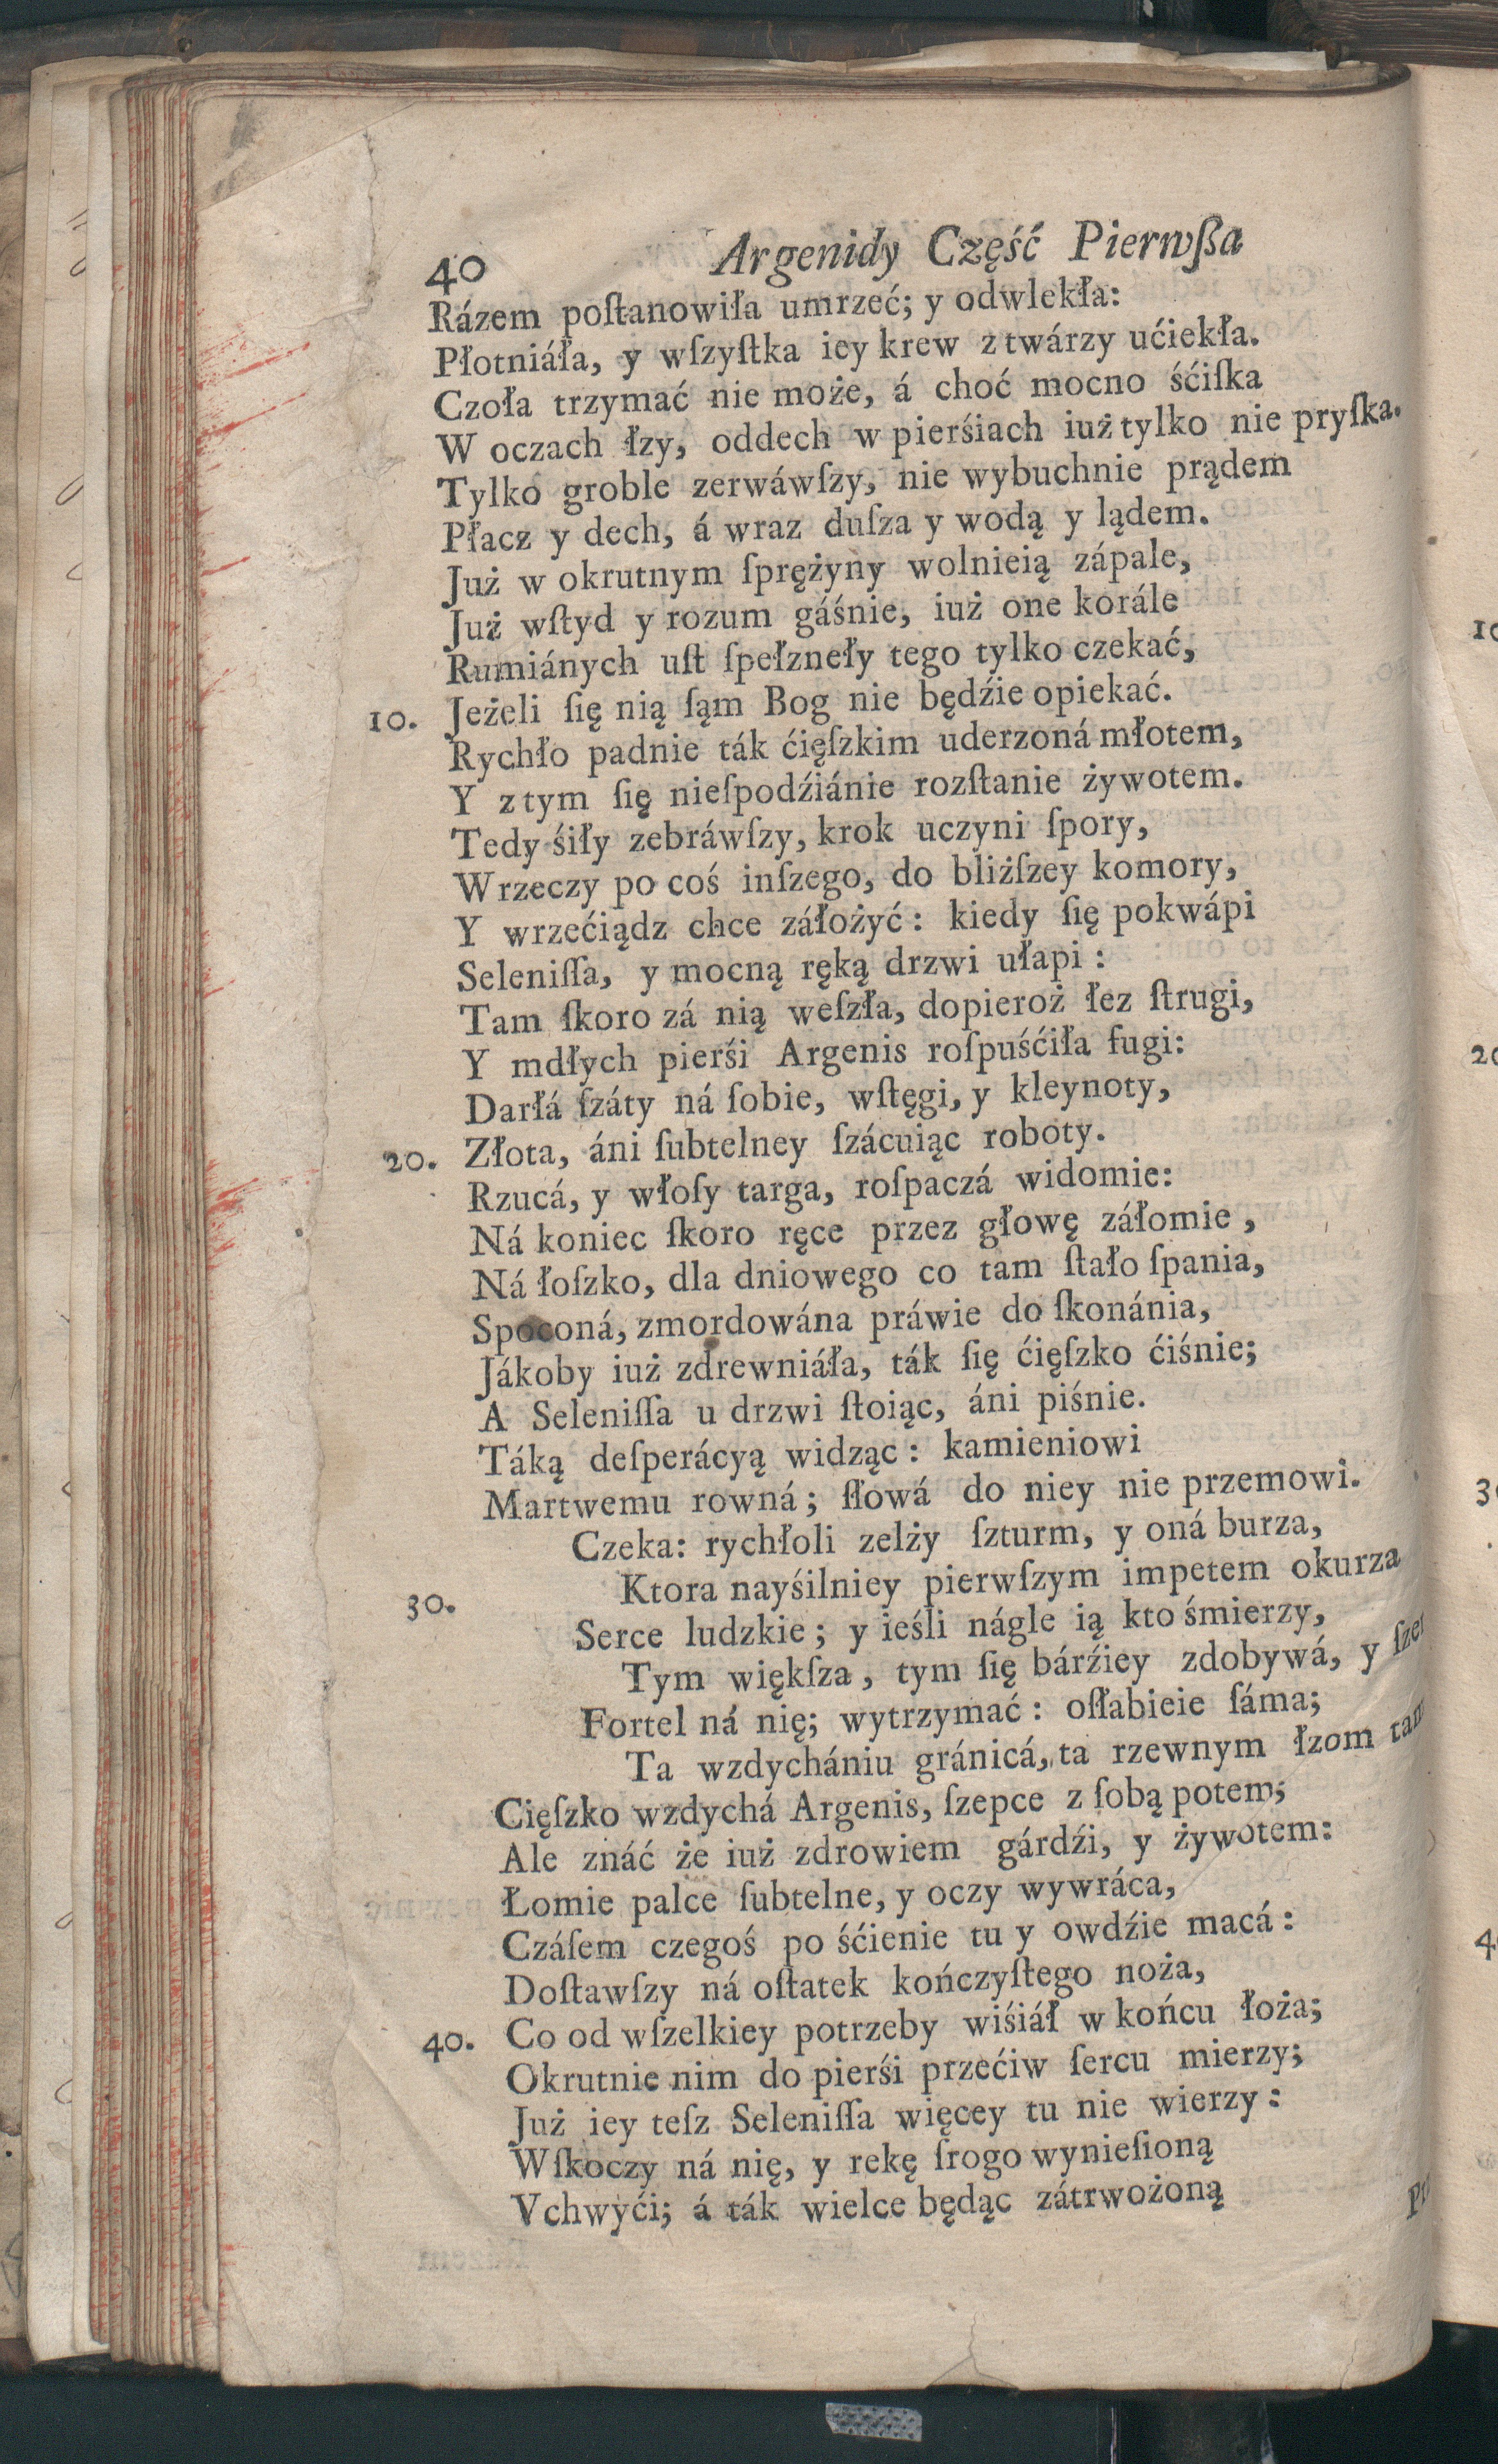 40 Argenidy Część Pierwßa
Rázem poſtanowiła umrzeć; y odwlekła:
Płotniáła, y wſzyſtka iey krew z twárzy ućiekła.
Czoła trzymać nie może, á choć mocno śćiſka
W oczach łzy, oddech w pierśiach iuż tylko nie pryſka.
Tylko groble zerwáwſzy, nie wybuchnie prądem
Płacz y dech, á wraz duſza y wodą y lądem.
Już w okrutnym ſprężyny wolnieią zápale,
Już wſtyd y rozum gáśnie, iuż one korále
Rumiánych uſt ſpełzneły tego tylko czekać,
10. Jeżeli ſię nią ſąm Bog nie będźie opiekać.
Rychło padnie ták ćięſzkim uderzoná młotem,
Y z tym ſię nieſpodźiánie rozſtanie żywotem.
Tedy śiły zebráwſzy, krok uczyni ſpory,
Wrzeczy po coś inſzego, do bliżſzey komory,
Y wrzećiądz chce záłożyć: kiedy ſię pokwápi
Seleniſſa, y mocną ręką drzwi ułapi:
Tam ſkoro zá nią weſzła, dopieroż łez ſtrugi,
Y mdłych pierśi Argenis roſpuśćiła fugi:
Darłá ſzáty ná ſobie, wſtęgi, y kleynoty,
20. Złota, áni ſubtelney ſzácuiąc roboty.
Rzucá, y włoſy targa, roſpaczá widomie:
Ná koniec ſkoro ręce przez głowę záłomie,
Ná łoſzko, dla dniowego co tam ſtało ſpania,
Spoconá, zmordowána práwie do ſkonánia,
Jákoby iuż zdrewniáła, ták ſię ćięſzko ćiśnie;
A Seleniſſa u drzwi ſtoiąc, áni piśnie.
Táką deſperácyą widząc: kamieniowi
Martwemu rowná; ſłowá do niey nie przemowi.
Czeka: rychłoli zelży ſzturm, y oná burza,
30. Ktora nayśilniey pierwſzym impetem okurza
Serce ludzkie; y ieśli nágle ią kto śmierzy,
Tym więkſza, tym ſię bárźiey zdobywá, y
Fortel ná nię; wytrzymać: oſłabieie ſáma;
Ta wzdychániu gránicá, ta rzewnym łzom
Cięſzko wzdychá Argenis, ſzepce z ſobą potem;
Ale znáć że iuż zdrowiem gárdźi, y żywotem:
Łomie palce ſubtelne, y oczy wywráca,
Czáſem czegoś po śćienie tu y owdźie macá:
Doſtawſzy ná oſtatek kończyſtego noża,
40. Co od wſzelkiey potrzeby wiśiáł w końcu łoża;
Okrutnie nim do pierśi przećiw ſercu mierzy;
Już iey teſz Seleniſſa więcey tu nie wierzy:
Wſkoczy ná nię, y rekę ſrogo wynieſioną
Vchwyći; á ták wielce będąc zátrwożoną